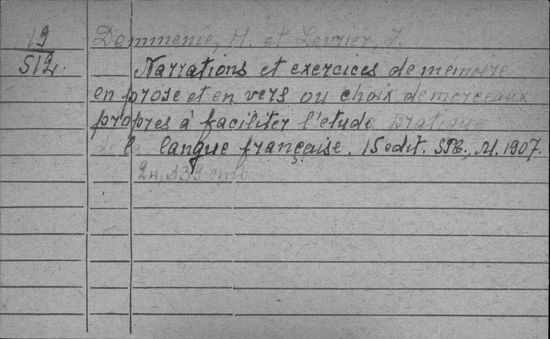 19
512.
Dommenie, H. et Lerrier, J.
Narrations et exercices de mémoire
en prose et en vers ou choix de morceaux
propres à faciliter l'etude pratique
de la langue française. 15 edit. СПб., М. 1907.
2н, 339 стр.